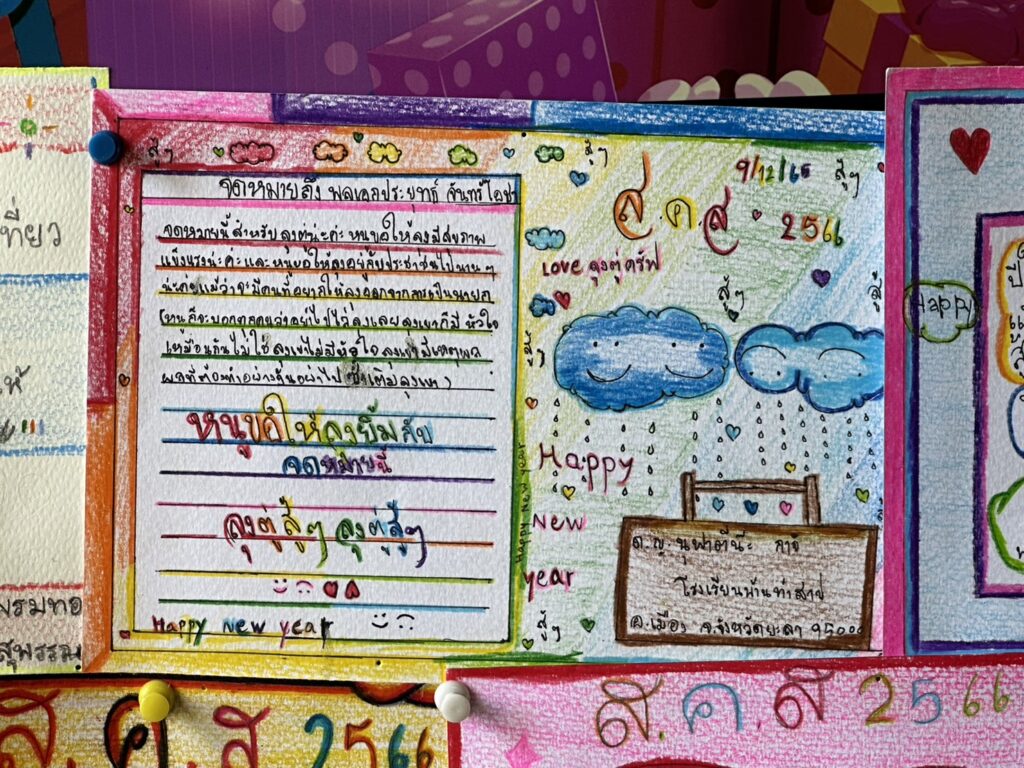 จดหมายถึง พลเอกประยุทธ์ จันทร์โอชา
จดหมายนี้สำหรับลุงตู่นะค่ะ หนูขอให้ลุงมีสุขภาพ
แข็งแรงนะค่ะและหนูขอให้ลุงอยู่กับประชาชนไปนาน ๆ
นะค่ะแม้ว่าจะมีคนที่อยากให้ลุงออกจากการเป็นนายก
(หนูก็จะบอกทุกคนว่าอย่าไปไล่ลุงเลยลุงเขาก็มี หัวใจ
เหมือนกันไม่ใช่ลุงเขาไม่มีหัวใจ ลุงเขามีเหตุผล
ผลที่ต้องทำอย่างงั้นอย่าไป ซ้ำเติมลุงเขา)
หนูขอให้ลุงยิ้มกับ
จดหมายนี้
ลุงตู่สู้ๆ ลุงตู่สู้ๆ
Happy new year
Happy New year
สู้ๆ
สู้ๆ
9/12/65
สู้ๆ
ส ค ส 2566
Love ลุงตู่ครัฟ
สู้ๆ
สู้ๆ
สู้ๆ
Happy
New
year
สู้ๆ
ด.ญ. นูฟาตีนีะ กาจิ
โรงเรียนบ้านท่าสาป
อ.เมือง จ.จังหวัดยะลา 95000
ที่ยว
ห้
พรมทอ
สุพรรณ
Happy
ปี
ส.ค.ส 2566
ส.ค.ส 2566